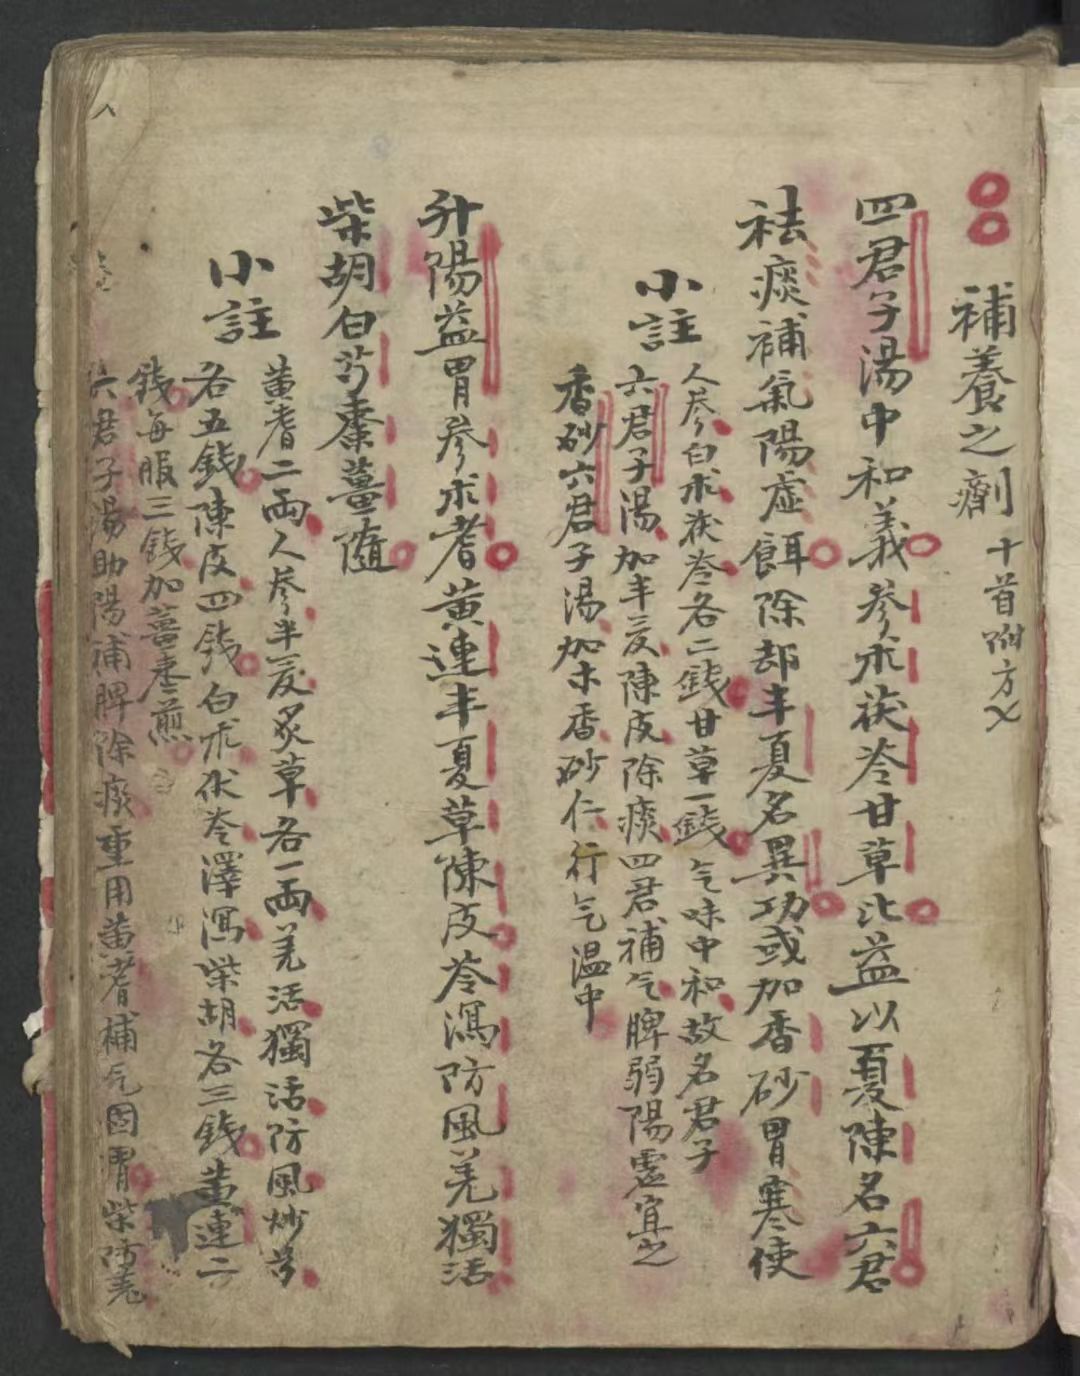 補養之劑 十首附方乂
四君子湯中和義參朮茯苓甘草比益以夏陳名六君
祛痰補氣陽虛餌除却半夏名異功或加香砂胃寒使
小註
人参白朮茯苓各二錢甘草一錢气味中和故名君子
六君子湯加半夏陳皮除痰四君補气脾弱陽虛宜之
香砂六君子湯加木香砂仁行气温中
升陽益胃參朮耆黄連半夏草陳皮苓瀉防風羌獨活
柴胡白芍棗薑隨
小註
黄耆二両人參半夏炙草各一両羌活獨活防風炒芍
各五錢陳皮四錢白朮伏苓澤瀉柴胡各三錢黄連二
錢每服三錢加薑枣煎
六君子湯助陽補脾除痰重用黄耆補气固胃柴防羌